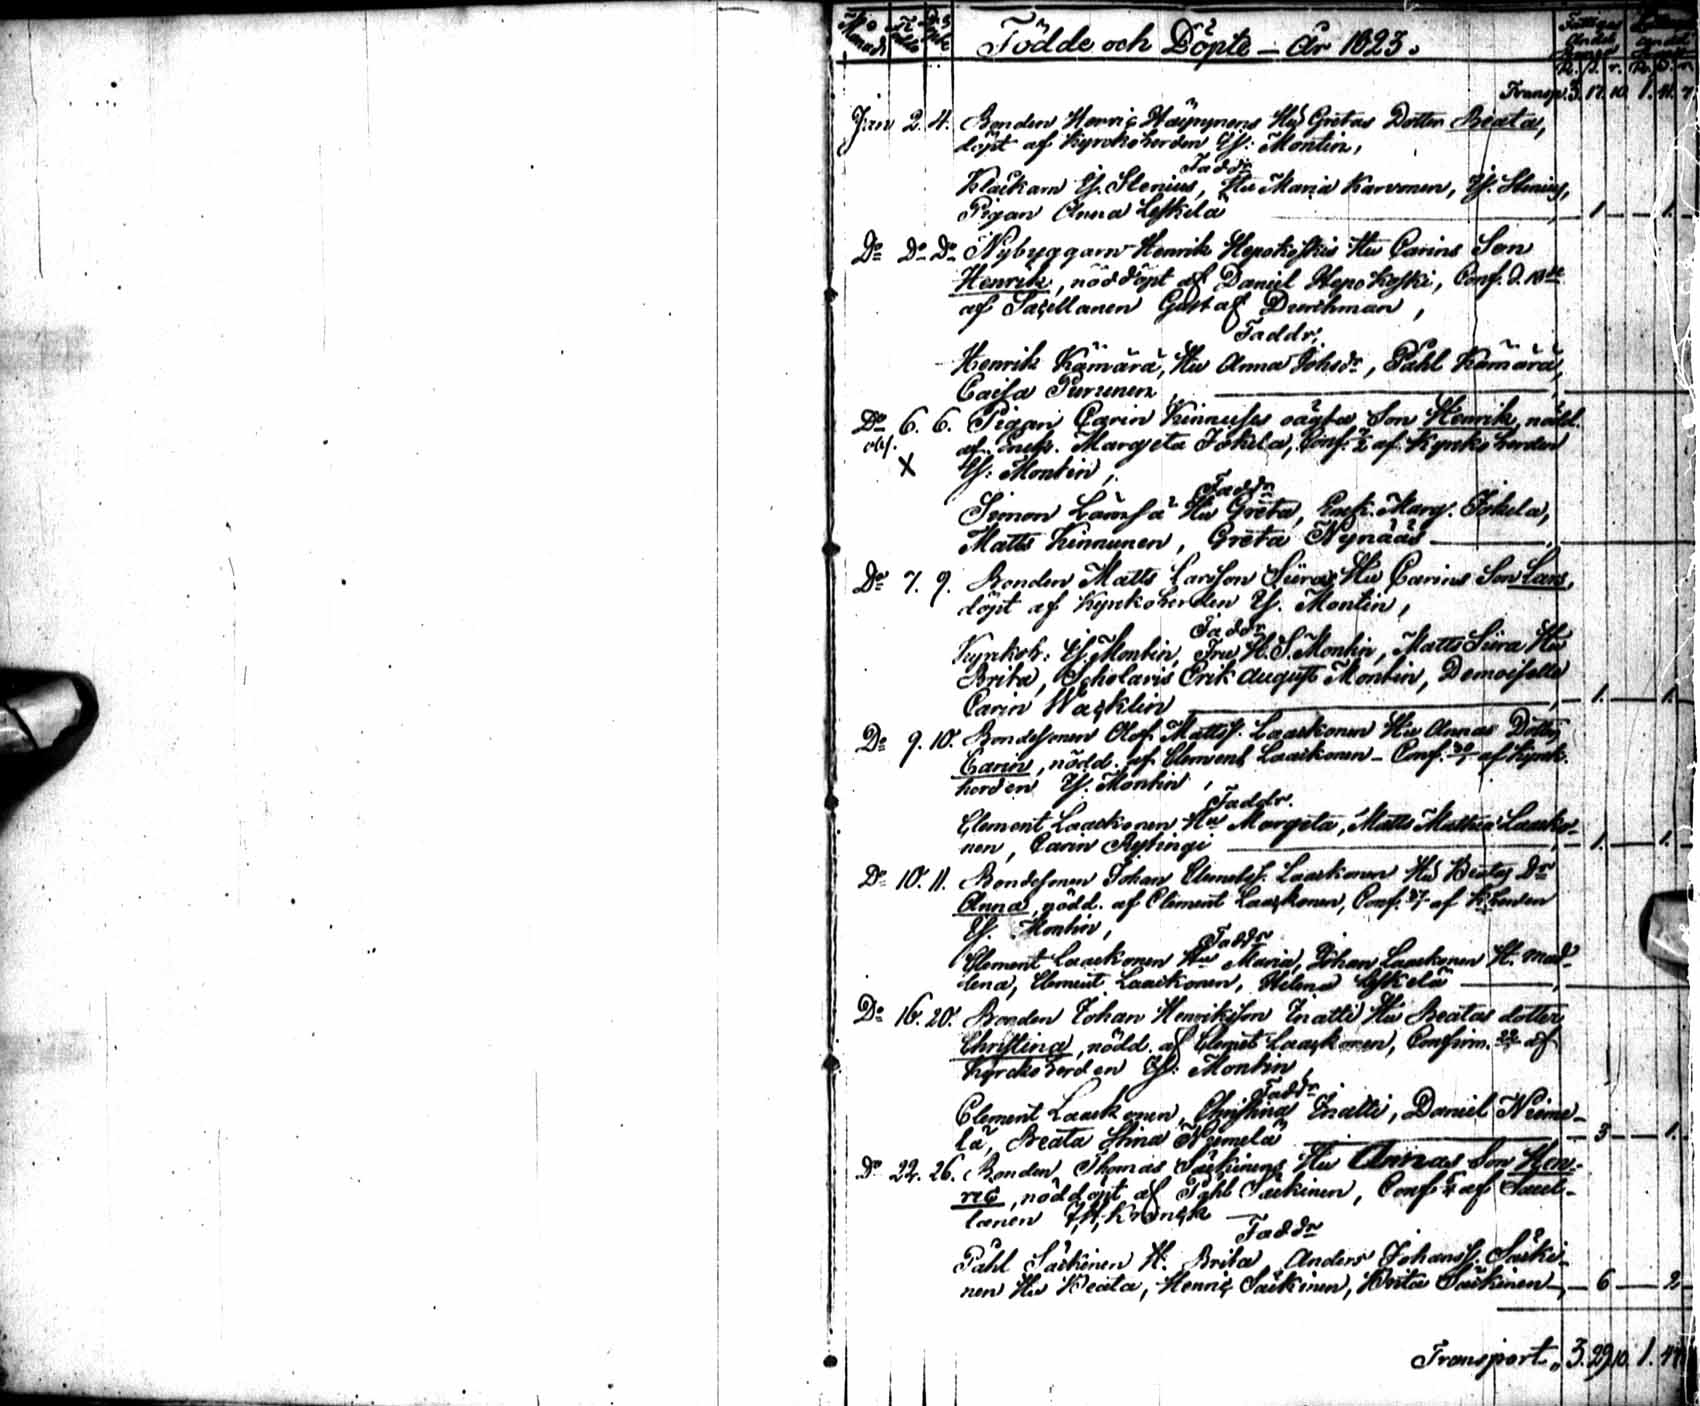 Födde och Döpte – År 1823.
Transp. 3. 17. 10 1. 41.
Jan 2. 4. Bonden Henric Häyrynens Hu Gretas Dotter Beata,
döpt af Kyrckoherden Ij: Montin,
Faddr
Klåckarn Ij. Stenius, Hu Maria Karvonen, Ij. Stenius,
Pigan Anna Leskelä 1 1.
Do Do Do Nybyggarn Henrik Hepokoskis Hu Carins Son
Henrik, nöddöpt af Daniel Hepokoski, Conf. d.
af Sacellanen Gustaf Durchman,
Faddr.
Henrik Kämärä, Hu Anna Johsdr, Påhl Kämärä,
Caisa Turunen
Do 6. 6. Pigan Carin Kinnuses oägta Son Henrik, nödd.
X af Enk. Margeta Jokela, Conf. af Kyrkoherden
Ij: Montin,
Faddr
Simon Lämsä Hu Greta, Enk. Marg. Jokela,
Matts Kinnunen, Greta Nynääs
Do 7. 9. Bonden Matts Larsson Siiras Hu Carins Son Lars,
döpt af Kyrkoherden Ij. Montin,
Faddr
Kyrkoh: Ij. Montin, Fru H. S. Montin, Matts Siira Hu
Brita, Scholaris Erik August Montin, Demoiselle
Carin Wacklin 1. 1.
Do 9. 10. Bondesonen Olof Mattss. Laackonen Hu Annas Dotter
Carin, nödd. af Clement Laackonen – Conf. af Kyrck-
herden Ij. Montin,
Faddr.
Clement Laackonen Hu Margeta, Matts Laacko-
nen, Carin 1. 1.
Do 10. 11. Bondesonen Johan Clemetss. Laackonen Hu Beatas Dr
Anna, nödd. af Clement Laackonen, Conf. af K.herden
Ij. Montin,
Faddr
Clement Laackonen Hu Maria, Johan Laackonen H. Mad-
lena, Clement Laackonen, Helena Leskelä
Do 16. 20. Bonden Johan Henriksson Inatti Hu Beatas dotter
Christina, nödd. af Clemet Laackonen, Confirm. af
Kyrckoherden Ij: Montin
Faddr
Clement Laackonen, Christina Inatti, Daniel Nieme-
lä, Beata Stina Niemelä 3 1.
Do 22. 26. Bonden Thomas Säckinens Hu Annas Son Hen-
ric, nöddöpt af Påhl Säckinen, Conf. af Sacel-
lanen
Faddr
Påhl Säckinen H. Brita Anders Johanss. Säcki-
nen Hu Beata, Henric Säckinen, Brita Säckinen 6 2
Transport 3. 29. 10. 1. 47